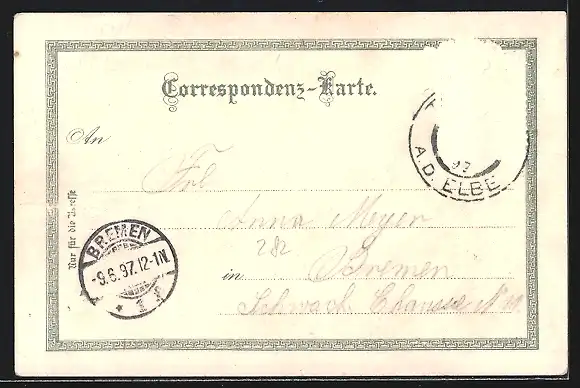 Correspondenz-Karte.
An
Frl
Anna Meyer
282
in Bremen
Schwach
Nur für die Adresse
BREMEN
-9.6.97.12-1N
* 1
97
A.D. ELBE